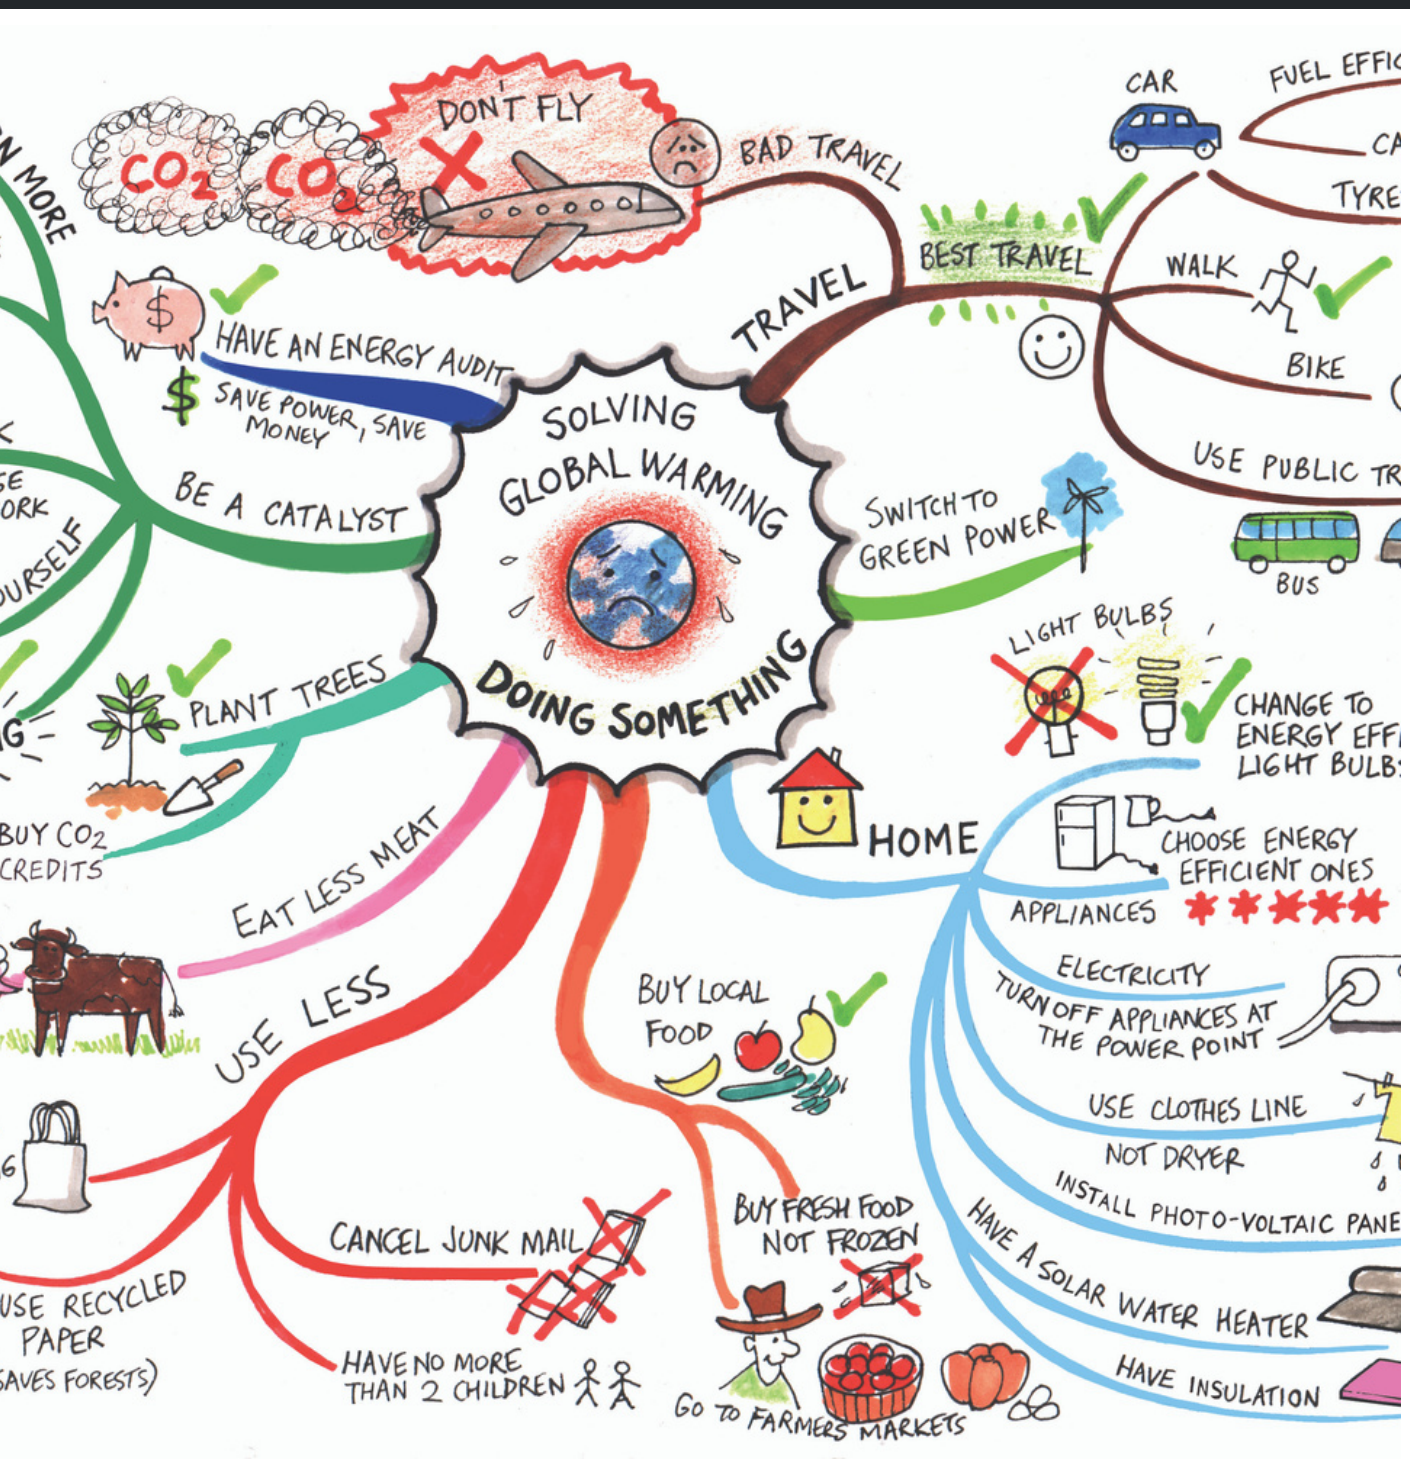 SOLVING
GLOBAL WARMING
DOING SOMETHING
TRAVEL
BAD TRAVEL
DON'T FLY
CO2
CO2
BEST TRAVEL
CAR
FUEL
TYRE
WALK
BIKE
USE PUBLIC
BUS
SWITCH TO
GREEN POWER
HOME
LIGHT BULBS
CHANGE TO
ENERGY
LIGHT BULBS
CHOOSE ENERGY
EFFICIENT ONES
APPLIANCES
ELECTRICITY
TURN OFF APPLIANCES AT
THE POWER POINT
USE CLOTHES LINE
NOT DRYER
INSTALL PHOTO-VOLTAIC
HAVE A SOLAR WATER HEATER
HAVE INSULATION
BUY LOCAL
FOOD
BUY FRESH FOOD
NOT FROZEN
GO TO FARMERS MARKETS
USE LESS
CANCEL JUNK MAIL
HAVE NO MORE
THAN 2 CHILDREN
USE RECYCLED
PAPER
SAVES FORESTS)
EAT LESS MEAT
PLANT TREES
BUY CO2
CREDITS
BE A CATALYST
MORE
OURSELF
HAVE AN ENERGY AUDIT
SAVE POWER, SAVE
MONEY
$
$